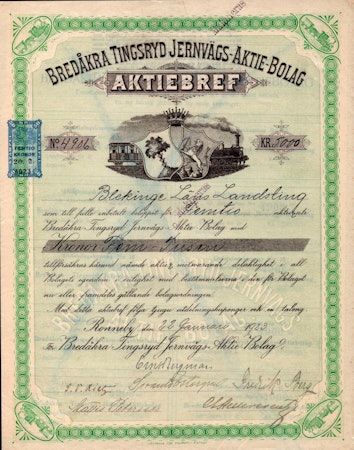 BREDÅKRA TINGSRYD JERNVÄGS-AKTIE-BOLAG
AKTIEBREF
No 4906 KR. 5000
FEMTIO KRONOR
1923
Blekinge Läns Landsting
som till fullo inbetalt beloppet för Femtio aktiebref i
Bredåkra Tingsryd Jernvägs Aktie Bolag med
Kronor Fem Tusen
tillförsäkras härmed nämde aktier motsvarande delaktighet i all
Bolagets egendom i enlighet med bestämmelserna i den för Bolaget
nu eller framdeles gällande bolagsordningen.
Med detta aktiebref följa tjugo utdelningskuponger och en talong
Ronneby den 22 Januari 1923
För Bredåkra Tingsryd Jernvägs-Aktie-Bolag: